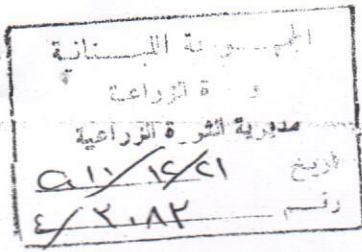 الجمهورية اللبنانية
وزارة الزراعة
مديرية الثورة الزراعية
تاريخ ٢٠١١/١٢/٢١
رقم ٤/٢٠٨٢